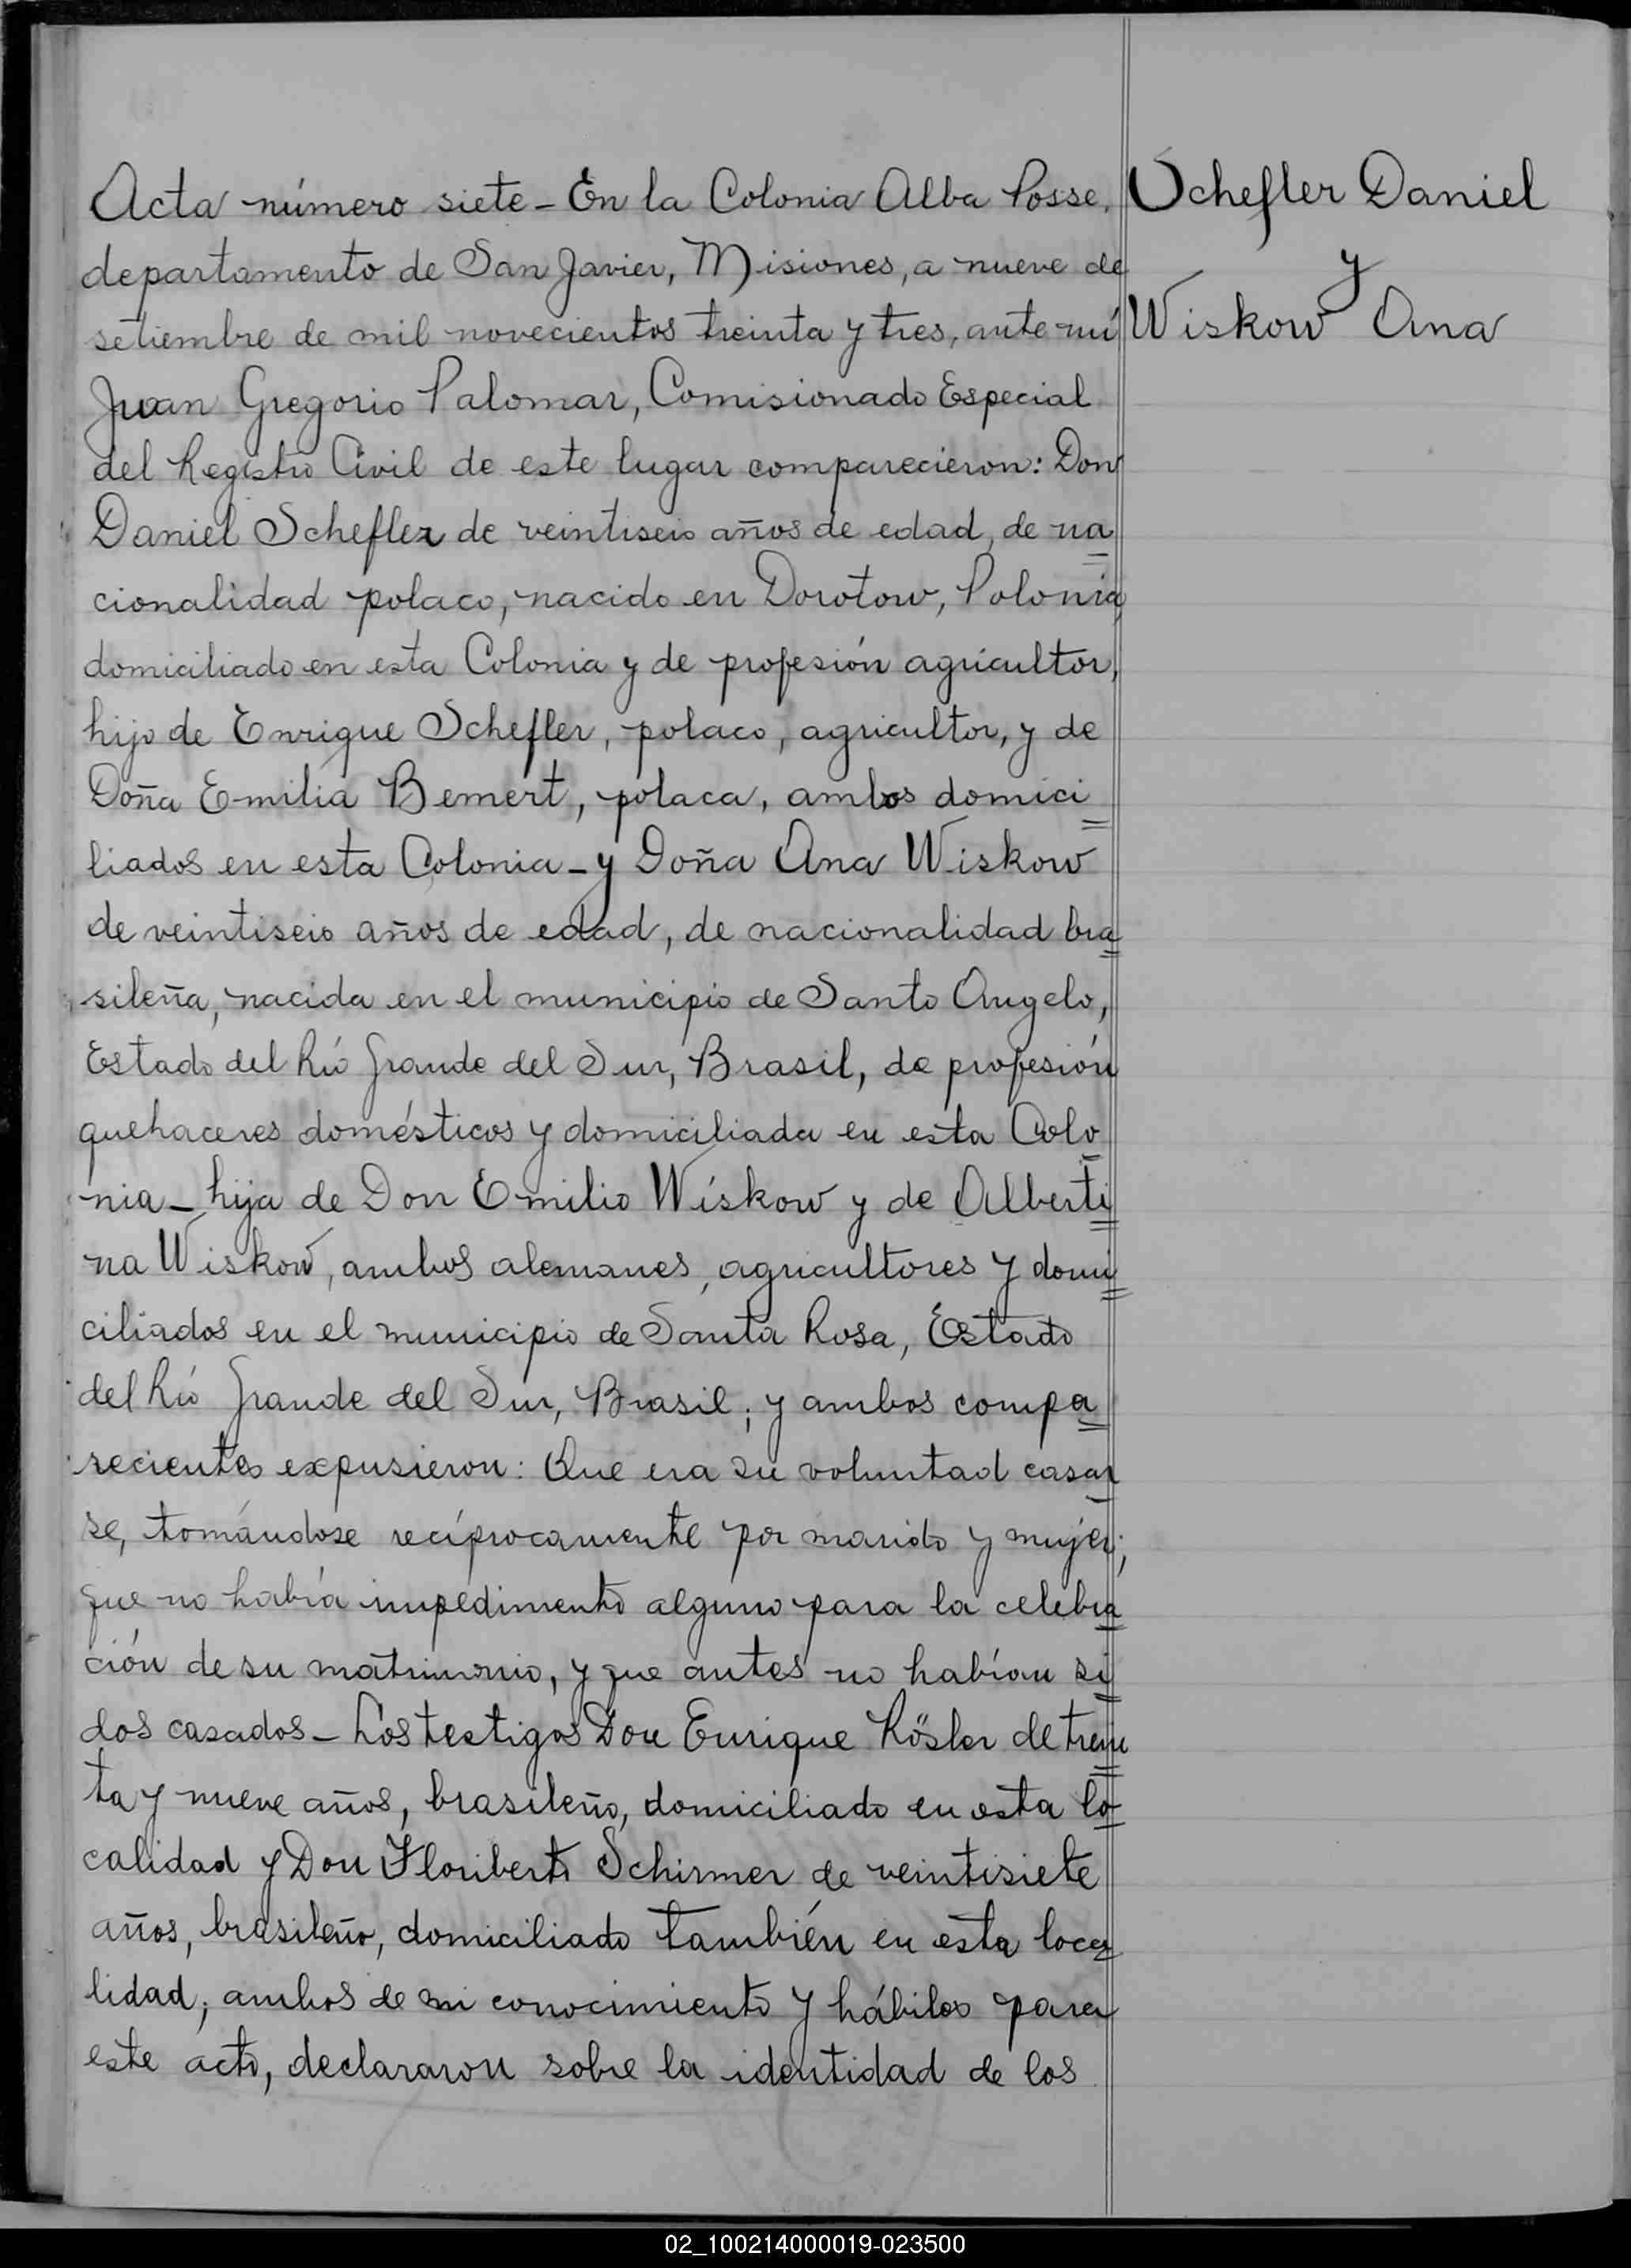 Acta número siete - En la Colonia Alba Posse,
departamento de San Javier, Misiones, a nueve de
setiembre de mil novecientos treinta y tres, ante mí
Juan Gregorio Palomar, Comisionado Especial
del Registro Civil de este lugar comparecieron: Don
Daniel Schefler de veintiseis años de edad, de na
cionalidad polaco, nacido en Dorotow, Polonia,
domiciliado en esta Colonia y de profesión agricultor,
hijo de Enrique Schefler, polaco, agricultor, y de
Doña Emilia Bemert, polaca, ambos domici
liados en esta Colonia - y Doña Ana Wiskow
de veintiseis años de edad, de nacionalidad bra
sileña, nacida en el municipio de Santo Angelo,
Estado del Río Grande del Sur, Brasil, de profesión
quehaceres domésticos y domiciliada en esta Colo
nia - hija de Don Emilio Wiskow y de Alberti
na Wiskow, ambos alemanes, agricultores y domi
ciliados en el municipio de Santa Rosa, Estado
del Río Grande del Sur, Brasil; y ambos compa
recientes expusieron: Que era su voluntad casar
se, tomándose recíprocamente por marido y mujer;
que no había impedimento alguno para la celebra
ción de su matrimonio, y que antes no habían si
dos casados - Los testigos Don Enrique Rösler de trein
ta y nueve años, brasileño, domiciliado en esta lo
calidad y Don Floriberto Schirmer de veintisiete
años, brasileño, domiciliado también en esta loca
lidad; ambos de mi conocimiento y hábiles para
este acto, declararon sobre la identidad de los
Schefler Daniel
y
Wiskow Ana
02_100214000019-023500